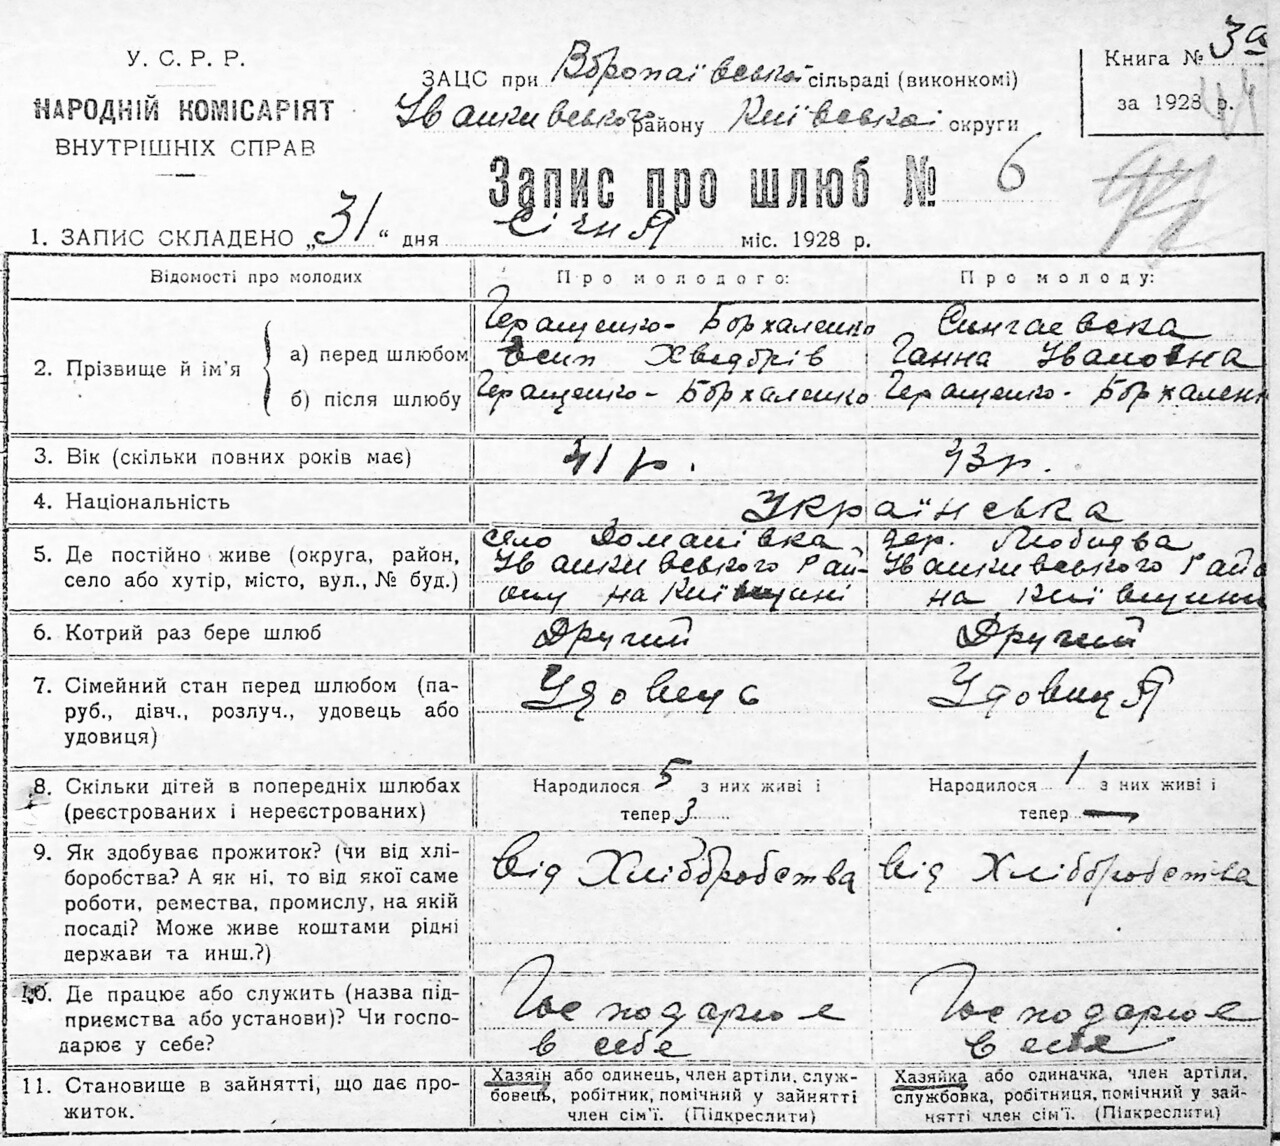 У. С. Р. Р.
НАРОДНІЙ КОМІСАРІЯТ
ВНУТРІШНІХ СПРАВ
ЗАЦС при сільраді (виконкомі)
району Київської округи
Книга № 3а
за 1928 р.
Запис про шлюб № 6
1. ЗАПИС СКЛАДЕНО „31" дня січня міс. 1928 р.
Відомості про молодих
Про молодого:
Про молоду:
2. Прізвище й ім'я
а) перед шлюбом
Геращенко-Борхаленко
Ганна Івановна
б) після шлюбу
Геращенко-Борхаленко
Геращенко-Борхаленк
3. Вік (скільки повних років має)
41 р.
43 р.
4. Національність
Українська
5. Де постійно живе (округа, район,
село або хутір, місто, вул., № буд.)
село Доманівка
Іванкивського Рай-
ону на Київщині
дер.
Іванкивського Райо
на Київщини
6. Котрий раз бере шлюб
Другий
Другий
7. Сімейний стан перед шлюбом (па-
руб., дівч., розлуч., удовець або
удовиця)
Удовець
Удовиця
8. Скільки дітей в попередніх шлюбах
(реєстрованих і нереєстрованих)
Народилося 5 з них живі і
тепер 3
Народилося 1 з них живі і
тепер —
9. Як здобуває прожиток? (чи від хлі-
боробства? А як ні, то від якої саме
роботи, ремества, промислу, на якій
посаді? Може живе коштами рідні
держави та инш.?)
Від Хлібобробства
Від Хлібобробства
10. Де працює або служить (назва під-
приємства або установи)? Чи госпо-
дарює у себе?
Господарює
в себе
Господарює
в себя
11. Становище в зайнятті, що дає про-
житок.
Хазяїн або одинець, член артіли, служ-
бовець, робітник, помічний у зайнятті
член сім'ї. (Підкреслити)
Хазяйка або одиначка, член артіли,
службовка, робітниця, помічний у зай-
нятті член сім'ї. (Підкреслити)